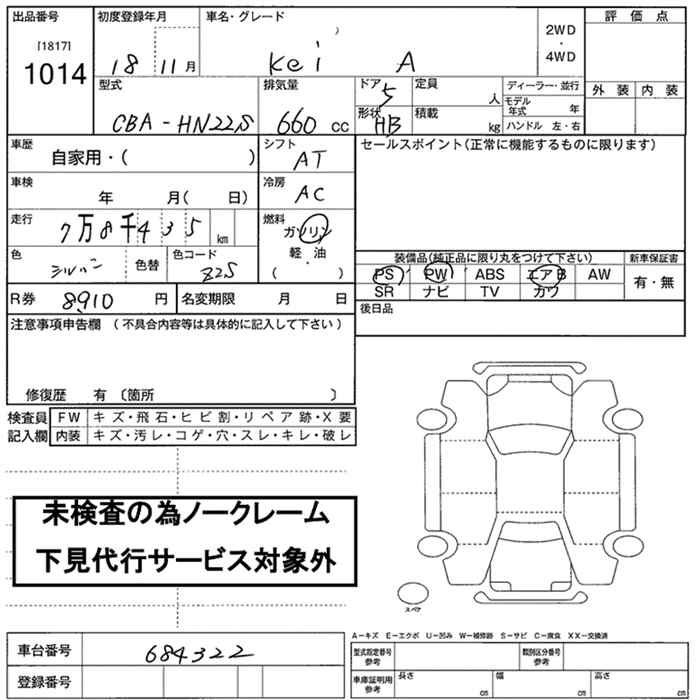 出品番号 初度登録年月 車名・グレード 評価点
[1817]
1014 18 11月 Kei A 2WD・4WD
外装 内装
型式 排気量 ドア 定員 ディーラー・並行
CBA-HN22S 660 CC 5 人 モデル年式 年
形状 積載 ハンドル 左・右
HB kg
車歴 シフト セールスポイント(正常に機能するものに限ります)
自家用・( ) AT
車検 冷房
年 月( 日) AC
走行 燃料
7万8千435 km ガソリン
軽・油
( ・ )
色 色替 色コード
シルバー Z2S
装備品(純正品に限り丸をつけて下さい) 新車保証書
PS PW ABS エアB AW 有・無
SR ナビ TV カワ
R券 8910 円 名変期限 月 日
後日品
注意事項申告欄 (不具合内容等は具体的に記入して下さい)
修復歴 有 〔箇所 〕
検査員 FW キズ・飛石・ヒビ割・リペア跡・X要
記入欄 内装 キズ・汚レ・コゲ・穴・スレ・キレ・破レ
未検査の為ノークレーム
下見代行サービス対象外
スペア
A-キズ E-エクボ U-凹み W-補修跡 S-サビ C-腐食 XX-交換済
車台番号 684322
登録番号
型式指定番号 参考 類別区分番号 参考
車庫証明用 参考 長さ cm 幅 cm 高さ cm